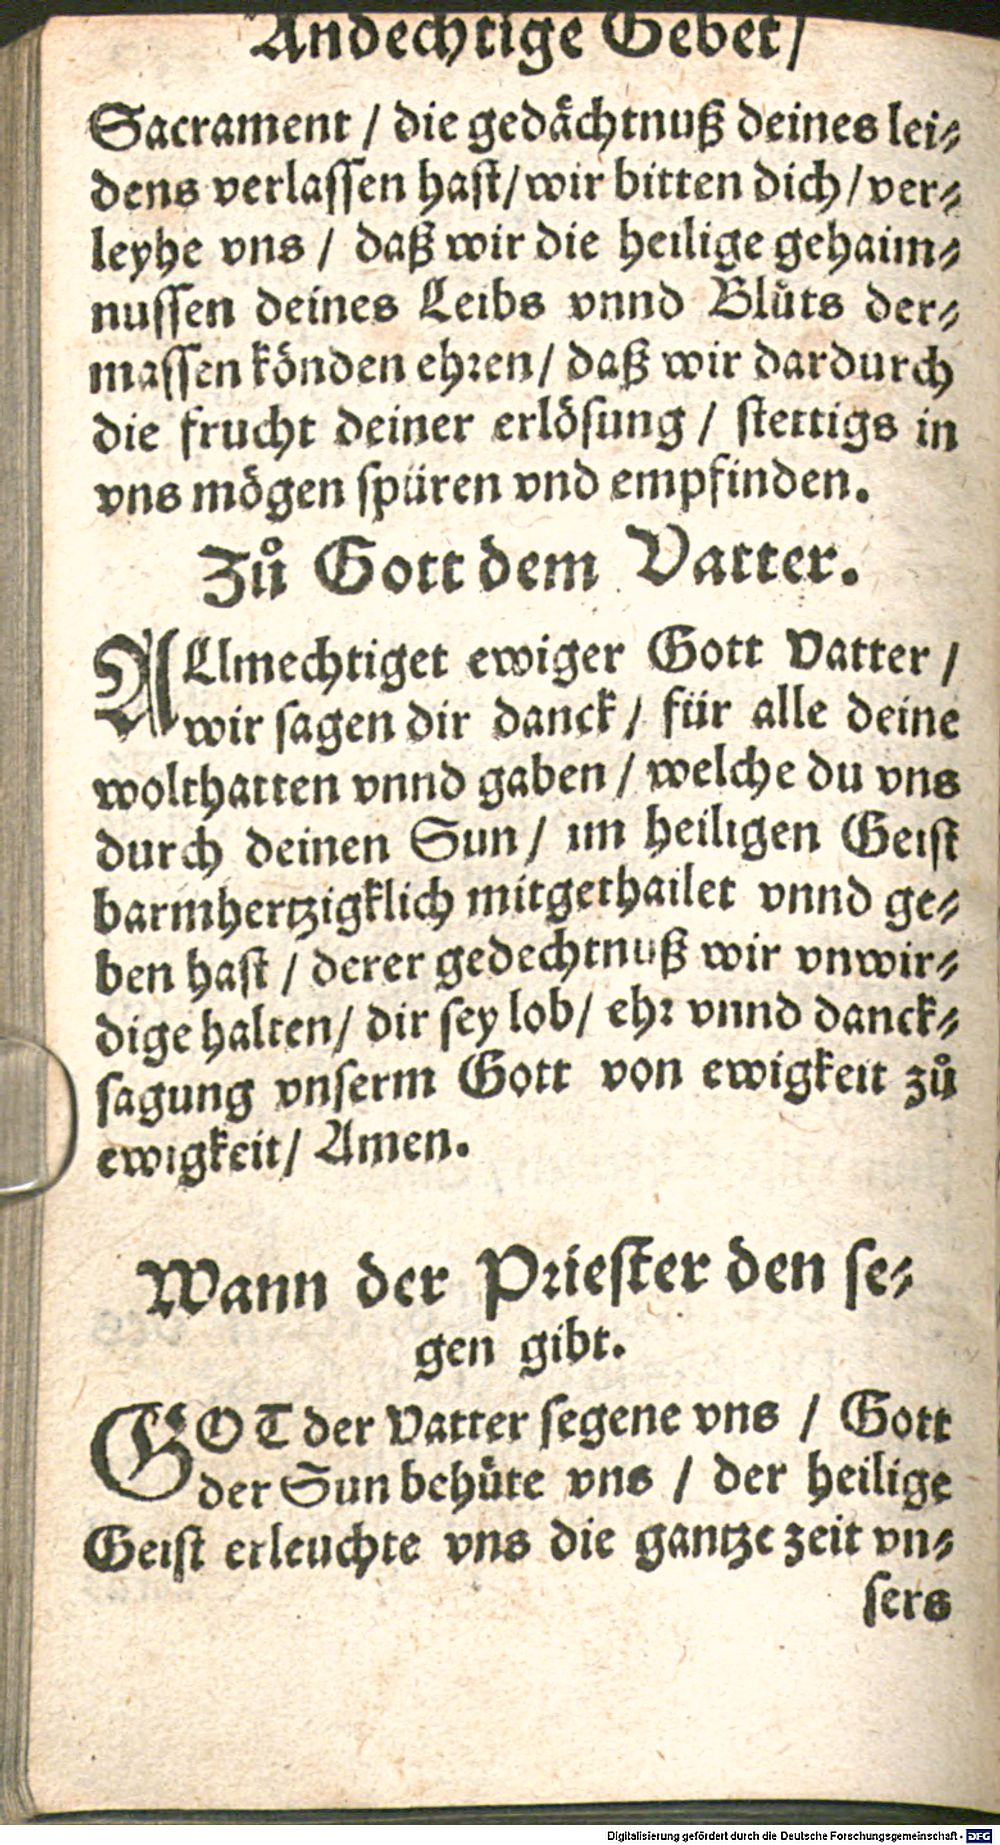 Andechtige Gebet/
Sacrament / die gedaͤchtnuß deines lei⸗
dens verlassen hast/ wir bitten dich / ver⸗
leyhe vns / daß wir die heilige gehaim⸗
nussen deines Leibs vnnd Bluͦts der⸗
massen koͤnden ehren / daß wir dardurch
die frucht deiner erloͤsung / stettigs in
vns moͤgen spüren vnd empfinden.
Zuͦ Gott dem Vatter.
ALlmechtiget ewiger Gott Vatter /
wir sagen dir danck / für alle deine
wolthatten vnnd gaben / welche du vns
durch deinen Sun / im heiligen Geist
barmhertzigklich mitgethailet vnnd ge⸗
ben hast / derer gedechtnuß wir vnwir⸗
dige halten / dir sey lob / ehr vnnd danck⸗
sagung vnserm Gott von ewigkeit zuͦ
ewigkeit / Amen.
Wann der Priester den se⸗
gen gibt.
GOT der Vatter segene vns / Gott
der Sun behuͤte vns / der heilige
Geist erleuchte vns die gantze zeit vn⸗
sers
Digitalisierung gefördert durch die Deutsche Forschungsgemeinschaft - DFG